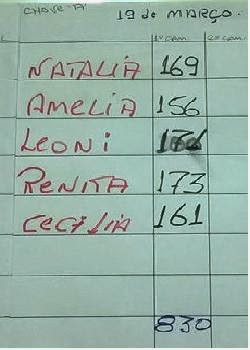 CHAVE "A" 19 de MARÇO.
1ª CAM. 2ª CAM.
NATALIA 169
AMELIA 156
LEONI
RENITA 173
CECILIA 161
830